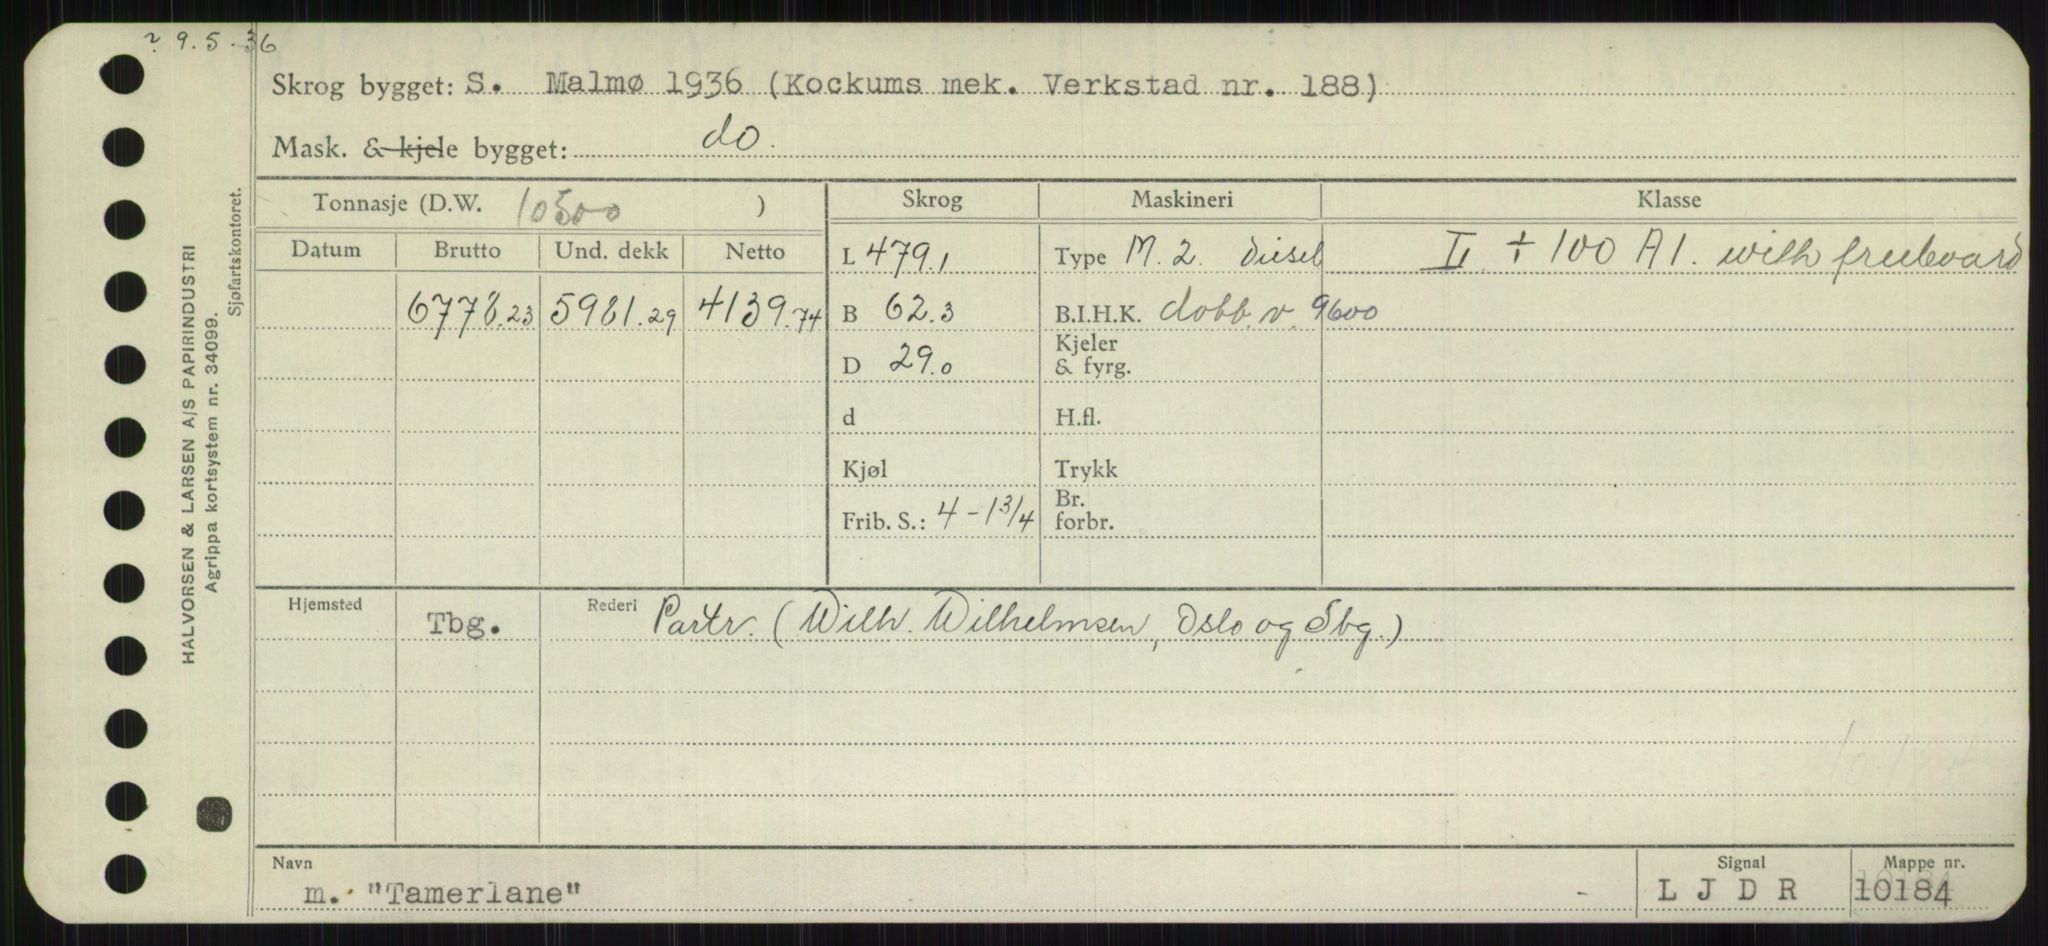 ? 9.5.36
Skrog bygget: S. Malmø 1936 (Kockums mek. Verkstad nr. 188)
Mask. & kjele bygget: do.
Tonnasje (D.W. 10500 ) Skrog Maskineri Klasse
Datum Brutto Und. dekk Netto L 479.1 Type M. 2. diesel + 100 A 1. with freeboard
6778.23 5981.29 4139.74 B 62.3 B.I.H.K. dobb. v. 9600
D 29.0 Kjeler & fyrg.
d H.fl.
Kjøl Trykk
Frib. S.: 4 - 1 3/4 Br. forbr.
Hjemsted Tbg. Rederi Partr. (Wilh. Wilhelmsen, Oslo og Tbg.)
Navn Signal Mappe nr.
m. "Tamerlane" - L J D R 10184
HALVORSEN & LARSEN A/S PAPIRINDUSTRI
Agrippa kortsystem nr. 34099.
Sjøfartskontoret.